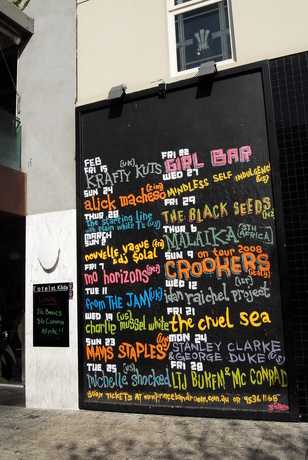 FEB
FRI 15 (UK)
KRAFTY KUTS
SUN 24 (Zim)
alick macheso
THUR 28
the starting line
plain white T's (US)
MARCH
SUN 2
nouvelle vague (FRA)
DJ Solal
FRI 7
mo horizons (GER)
TUE 11
from THE JAM (UK)
WED 19 (US)
charlie mussel white
SUN 23
MAVIS STAPLES (US)
TUE 25 (US)
michelle shocked
FRI 22
GIRL BAR
WED 27
MINDLESS SELF INDULGENCE (US)
FRI 29
THE BLACK SEEDS (NZ)
THUR 6
MALAIKA (STH AFRICA)
SUN 9 on tour 2008
CROOKERS (italy)
WED 12 (isr)
idan raichel project
FRI 21
the cruel sea
MON 24
STANLEY CLARKE
& GEORGE DUKE (US)
FRI 28
LTJ BUKEM & MC CONRAD
BOOK TICKETS AT www.princebandroom.com.au OR 9536 1168
St Kilda
$6 Basics
$6 Corona